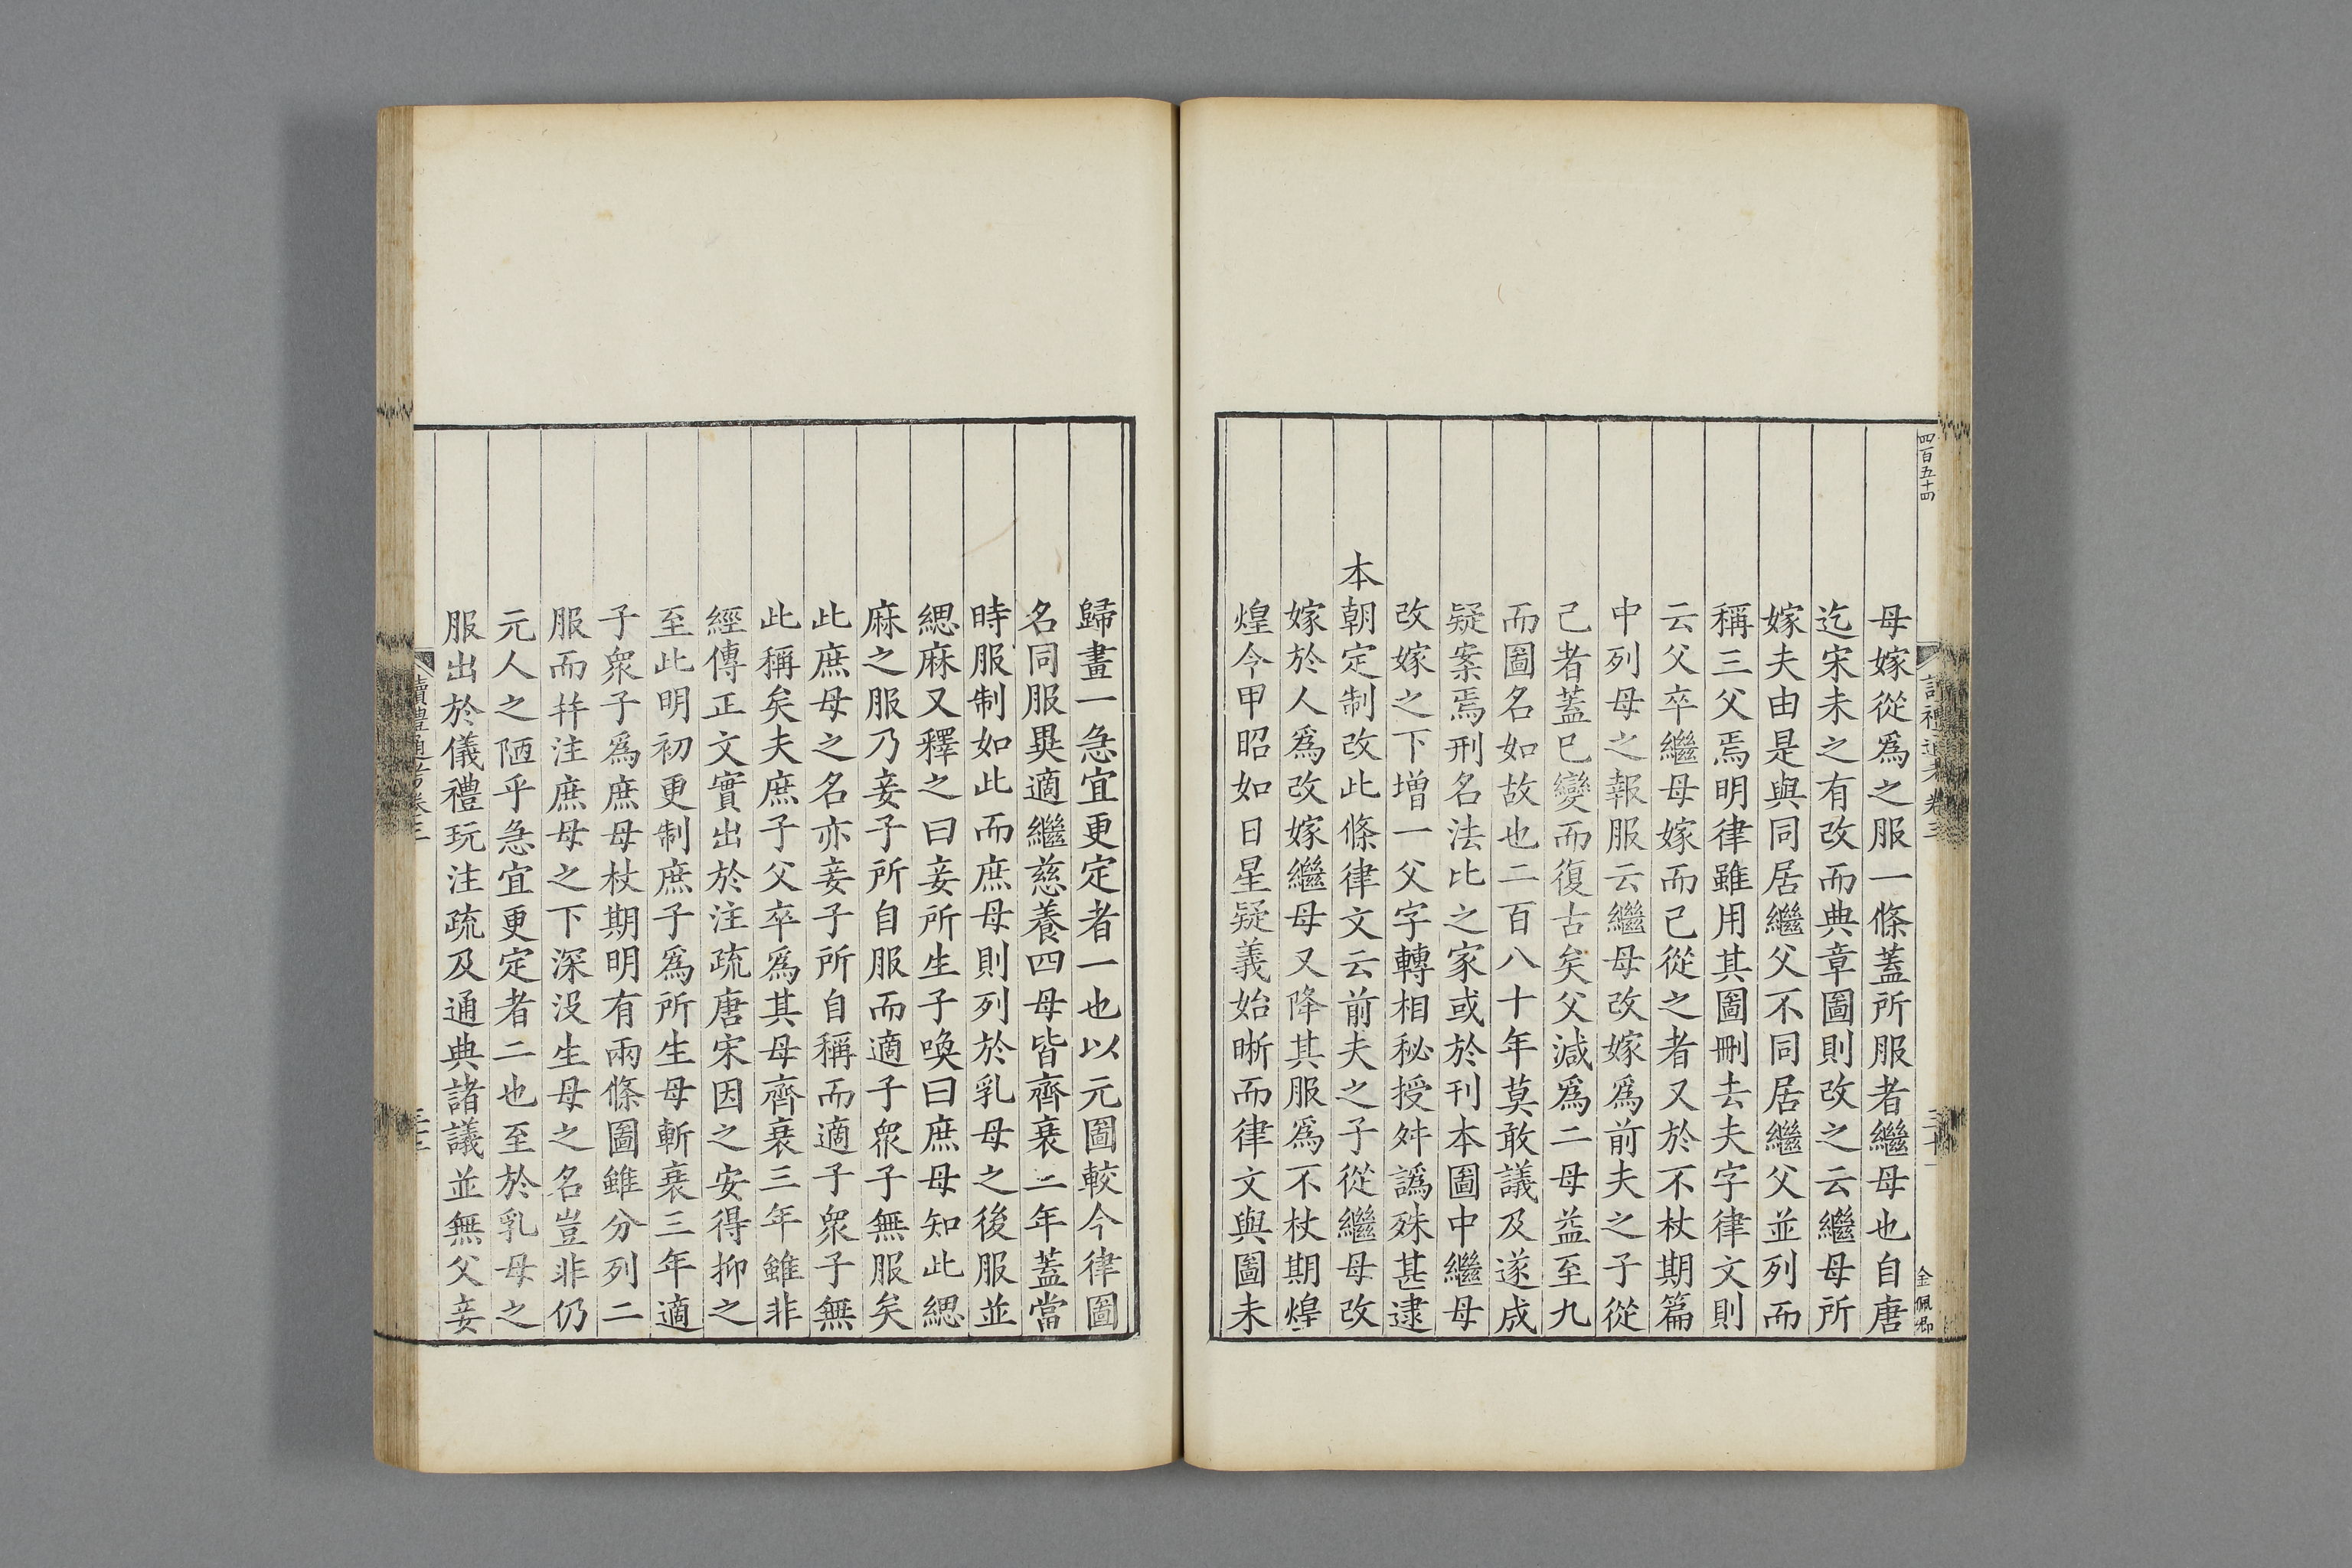 四百五十四
母嫁從爲之服一條蓋所服者繼母也自唐
迄宋未之有改而典章圖則改之云繼母所
嫁夫由是與同居繼父不同居繼父並列而
稱三父焉明律雖用其圖刪去夫字律文則
云父卒繼母嫁而己從之者又於不杖期篇
中列母之報服云繼母改嫁爲前夫之子從
己者蓋已變而復古矣父減爲二母益至九
而圖名如故也二百八十年莫敢議及遂成
疑案焉刑名法比之家或於刊本圖中繼母
改嫁之下增一父字轉相秘授舛譌殊甚逮
本朝定制改此條律文云前夫之子從繼母改
嫁於人爲改嫁繼母又降其服爲不杖期煌
煌今甲昭如日星疑義始晰而律文與圖未
金佩卿
歸畫一急宜更定者一也以元圖較今律圖
名同服異適繼慈養四母皆齊衰三年蓋當
時服制如此而庶母則列於乳母之後服並
緦麻又釋之曰妾所生子喚曰庶母知此緦
麻之服乃妾子所自服而適子衆子無服矣
此庶母之名亦妾子所自稱而適子衆子無
此稱矣夫庶子父卒爲其母齊衰三年雖非
經傳正文實出於注疏唐宋因之安得抑之
至此明初更制庶子爲所生母斬衰三年適
子衆子爲庶母杖期明有兩條圖雖分列二
服而幷注庶母之下深没生母之名豈非仍
元人之陋乎急宜更定者二也至於乳母之
服出於儀禮玩注疏及通典諸議並無父妾
讀禮通考卷三